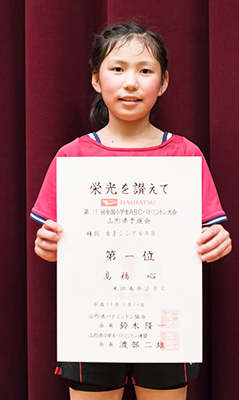 栄光を讃えて
DAIHATSU
全国小学生ABCバドミントン大会
山形県予選会
種別 女子シングルス
第一位
高橋 心
山形県バドミントン協会
会長 鈴木隆一
山形県小学生バドミントン連盟
会長 渡部二雄